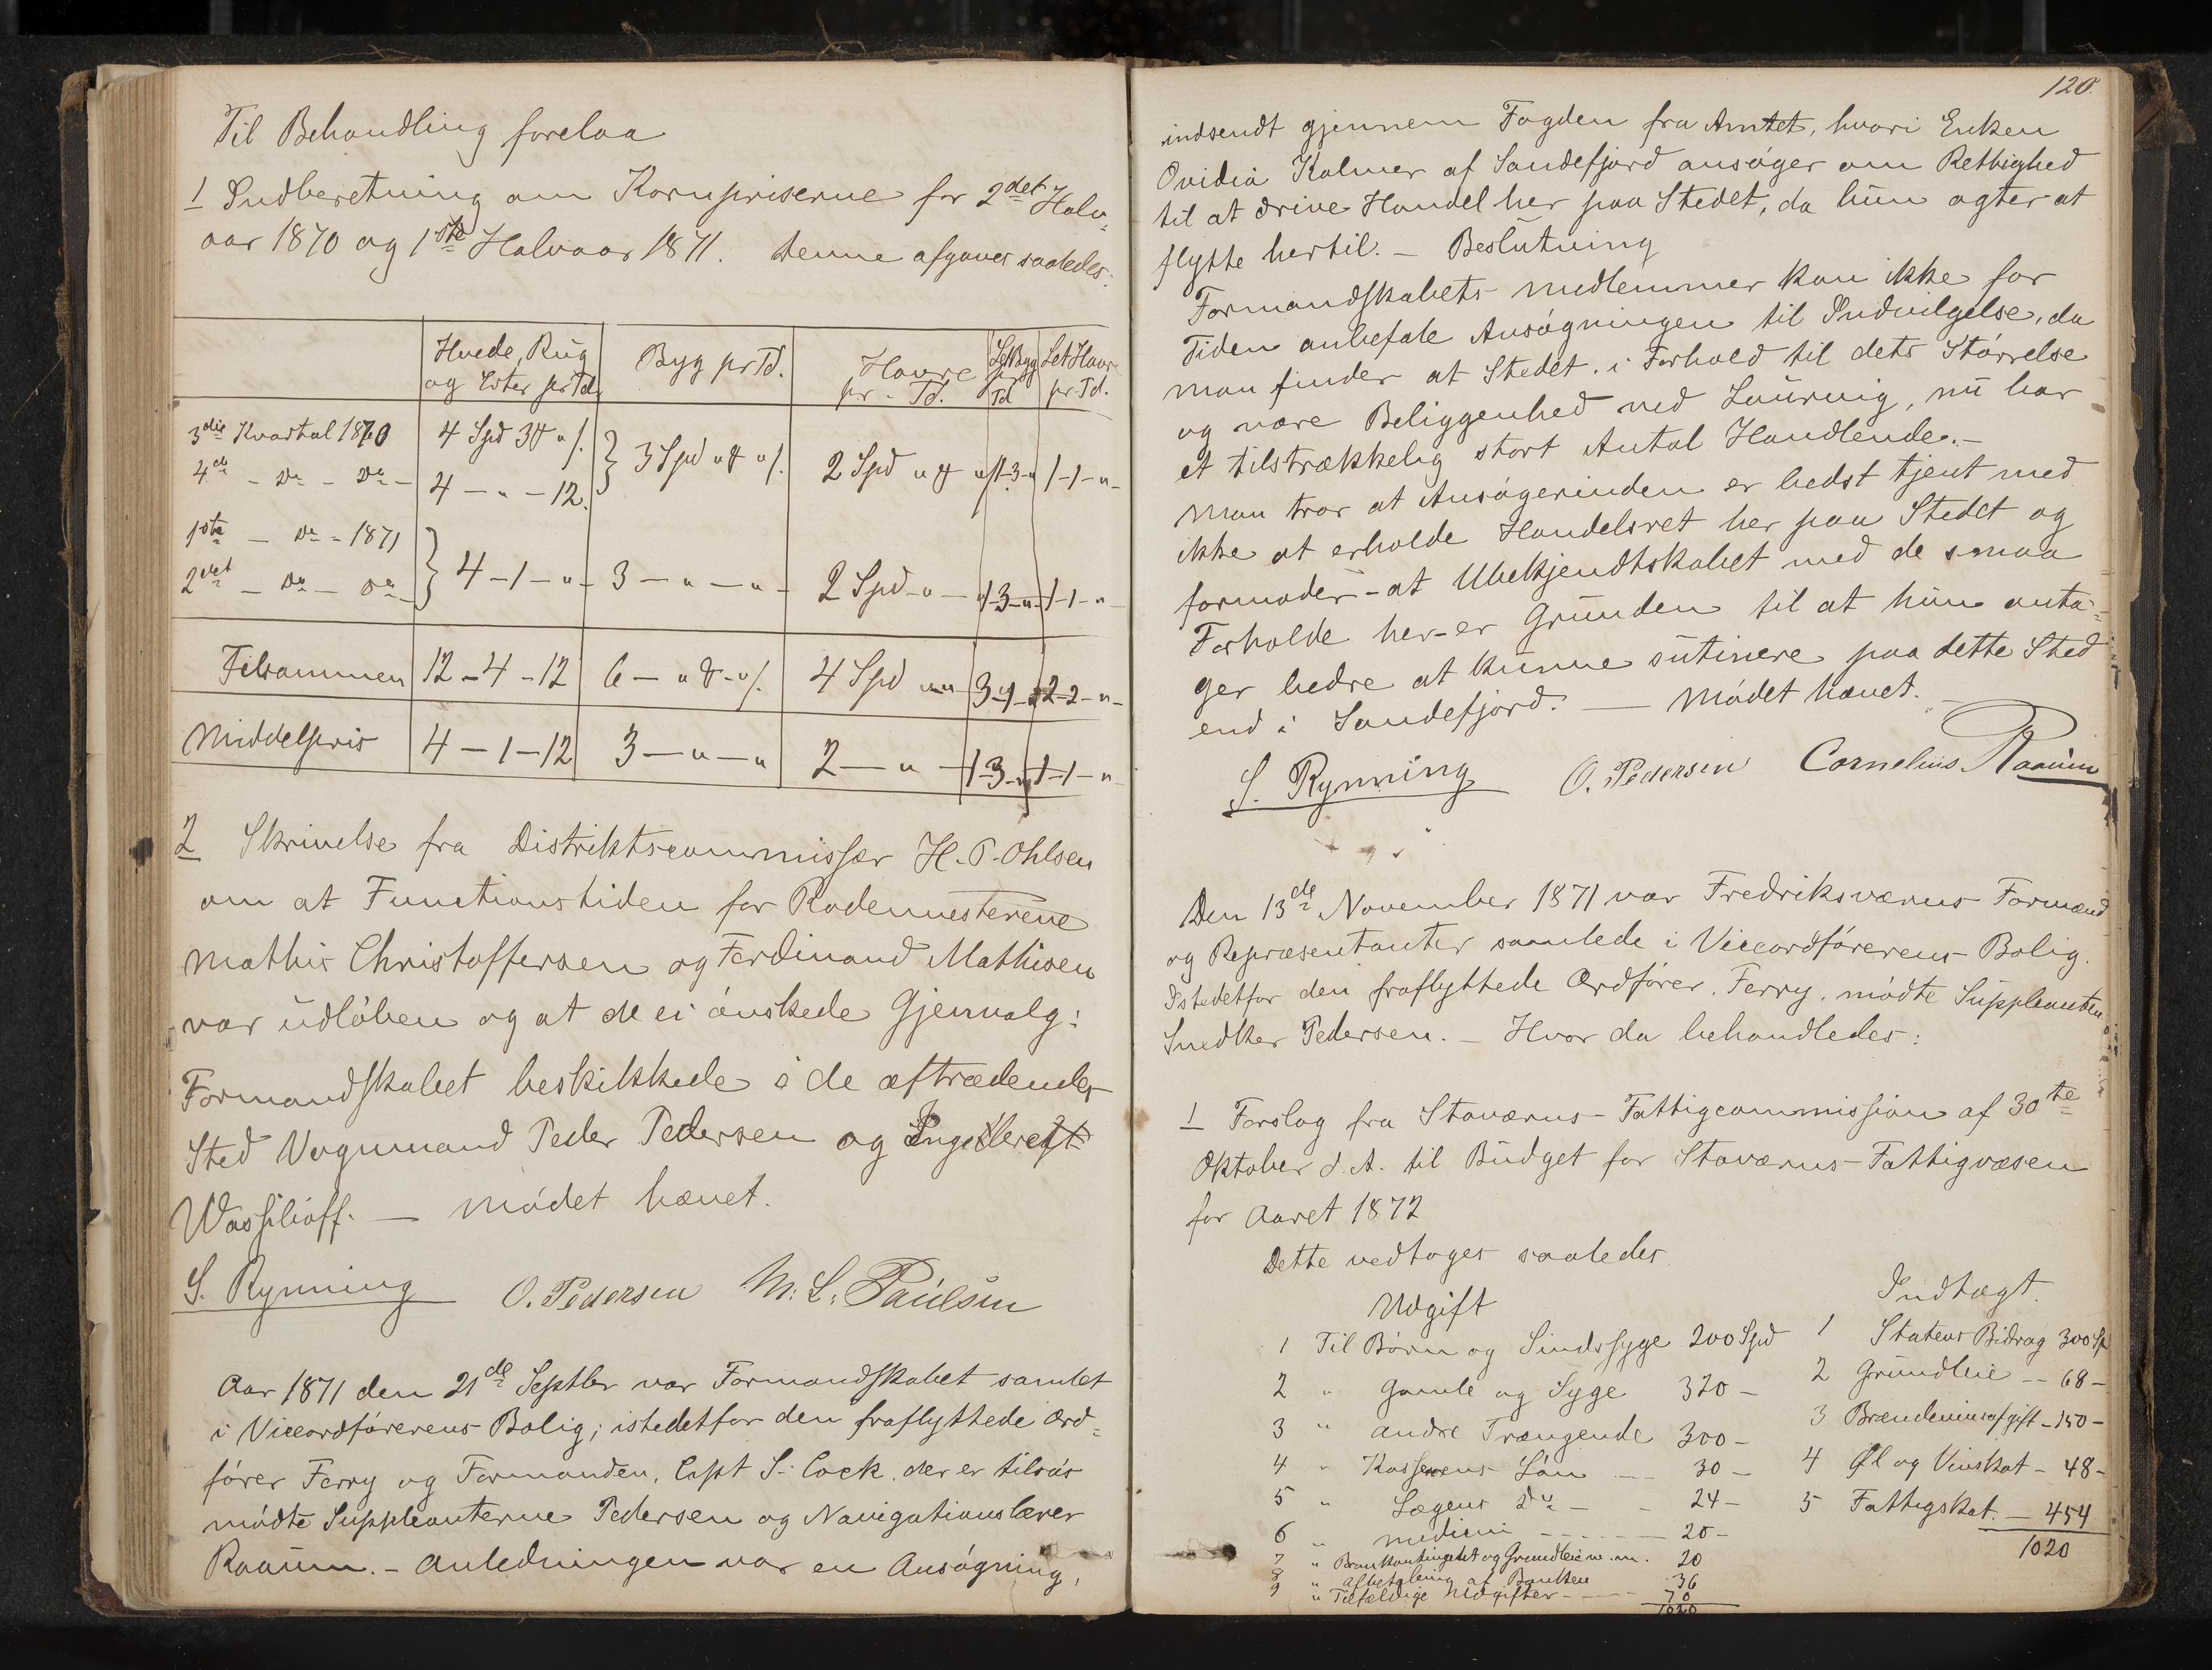 Til Behandling forelaa
1 Indberetning om Kornpriserne for 2det Halv-
aar 1870 og 1ste Halvaar 1871. Denne afgaves saaledes:
Hvede, Rug og Erter pr Td. Byg pr Td. Havre pr. Td. Let Byg pr Td Let Havr pr. Td.
3die Kvartal 1870 4 Spd 3 " /. } 3 Spd " " /. 2 Spd " " 1-3-" 1-1-"-
4de - Do - Do - 4 - " - 12.
1ste - Do - 1871
2det - Do - Do - } 4-1-"- 3-"-"- 2 Spd-"- 1-3-"- 1-1-"-
Tilsammen 12-4-12 6-"-"/. 4 Spd "" 3-1- 2-2-"-
Middelpris 4-1-12 3-"-" 2-"- 1-3-" 1-1-"-
2 Skrivelse fra Distriktscommissær H. P. Ohlsen
om at Functionstiden for Rodemesterene
Mathis Christoffersen og Ferdinand Mathisen
var udløben og at de ei ønskede Gjenvalg:
Formandskabet beskikkede i de aftrædendes
Sted Vognmand Peder Pedersen og
Wassilioff. — Mødet hævet.
S. Rynning O. Pedersen M. L. Paulsen
Aar 1871 den 21de Septbr var Formandskabet samlet
i Viceordførerens Bolig; istedetfor den fraflyttede Ord-
fører Ferry og Formanden, Capt S. Cock, der er tilsøs
mødte Suppleanterne Pedersen og Navigationslærer
Raaum. - Anledningen var en Ansøgning,
120.
indsendt gjennem Fogden fra Amtet, hvori Enken
Ovidia Kalmer af Sandefjord ansøger om Rettighed
til at drive Handel her paa Stedet, da hun agter at
flytte hertil. — Beslutning
Formandskabets medlemmer kan ikke for
Tiden anbefale Ansøgningen til Indvilgelse, da
man finder at Stedet, i Forhold til dets Størrelse
og nære Beliggenhed ved Laurvig, nu har
et tilstrækkelig stort Antal Handlende. -
Man tror at Ansøgerinden er bedst tjent med
ikke at erholde Handelsret her paa Stedet og
formoder - at Ubekjendtskabet med de smaa
Forholde her - er Grunden til at hun anta-
ger bedre at kunne sutinere paa dette Sted
end i Sandefjord. — Mødet hævet.
S. Rynning O. Pedersen Cornelius Raaum
Den 13de November 1871 var Fredriksværns Formænd
og Repræsentanter samlede i Viceordførerens Bolig.
Istedetfor den fraflyttede Ordfører Ferry, mødte Suppleanten
Snedker Pedersen. — Hvor da behandledes:
1 Forslag fra Staværns Fattigcommission af 30te
Oktober d. A. til Budget for Staværns Fattigvæsen
for Aaret 1872
Dette vedtoges saaledes
Udgift
1 Til Børn og Sindssyge 200 Spd
2 " Gamle og Syge 320 -
3 " andre Trængende 300 -
4 " Kasserens Løn — 30 -
5 " Lægens Do - - 24 -
6 " medicin - - - - - 20 -
7 " Brankontingent og Grundleie m. m. 20
8 " Afbetaling at Banken 36
9 " Tilfældige Udgifter - - - 70
1020
Indtægt.
1 Statens Bidrag 300 Sp
2 Grundleie -- 68 -
3 Brændeviinsafgift - 150 -
4 Øl og Vinskat - 48 -
5 Fattigskat. — 454
1020